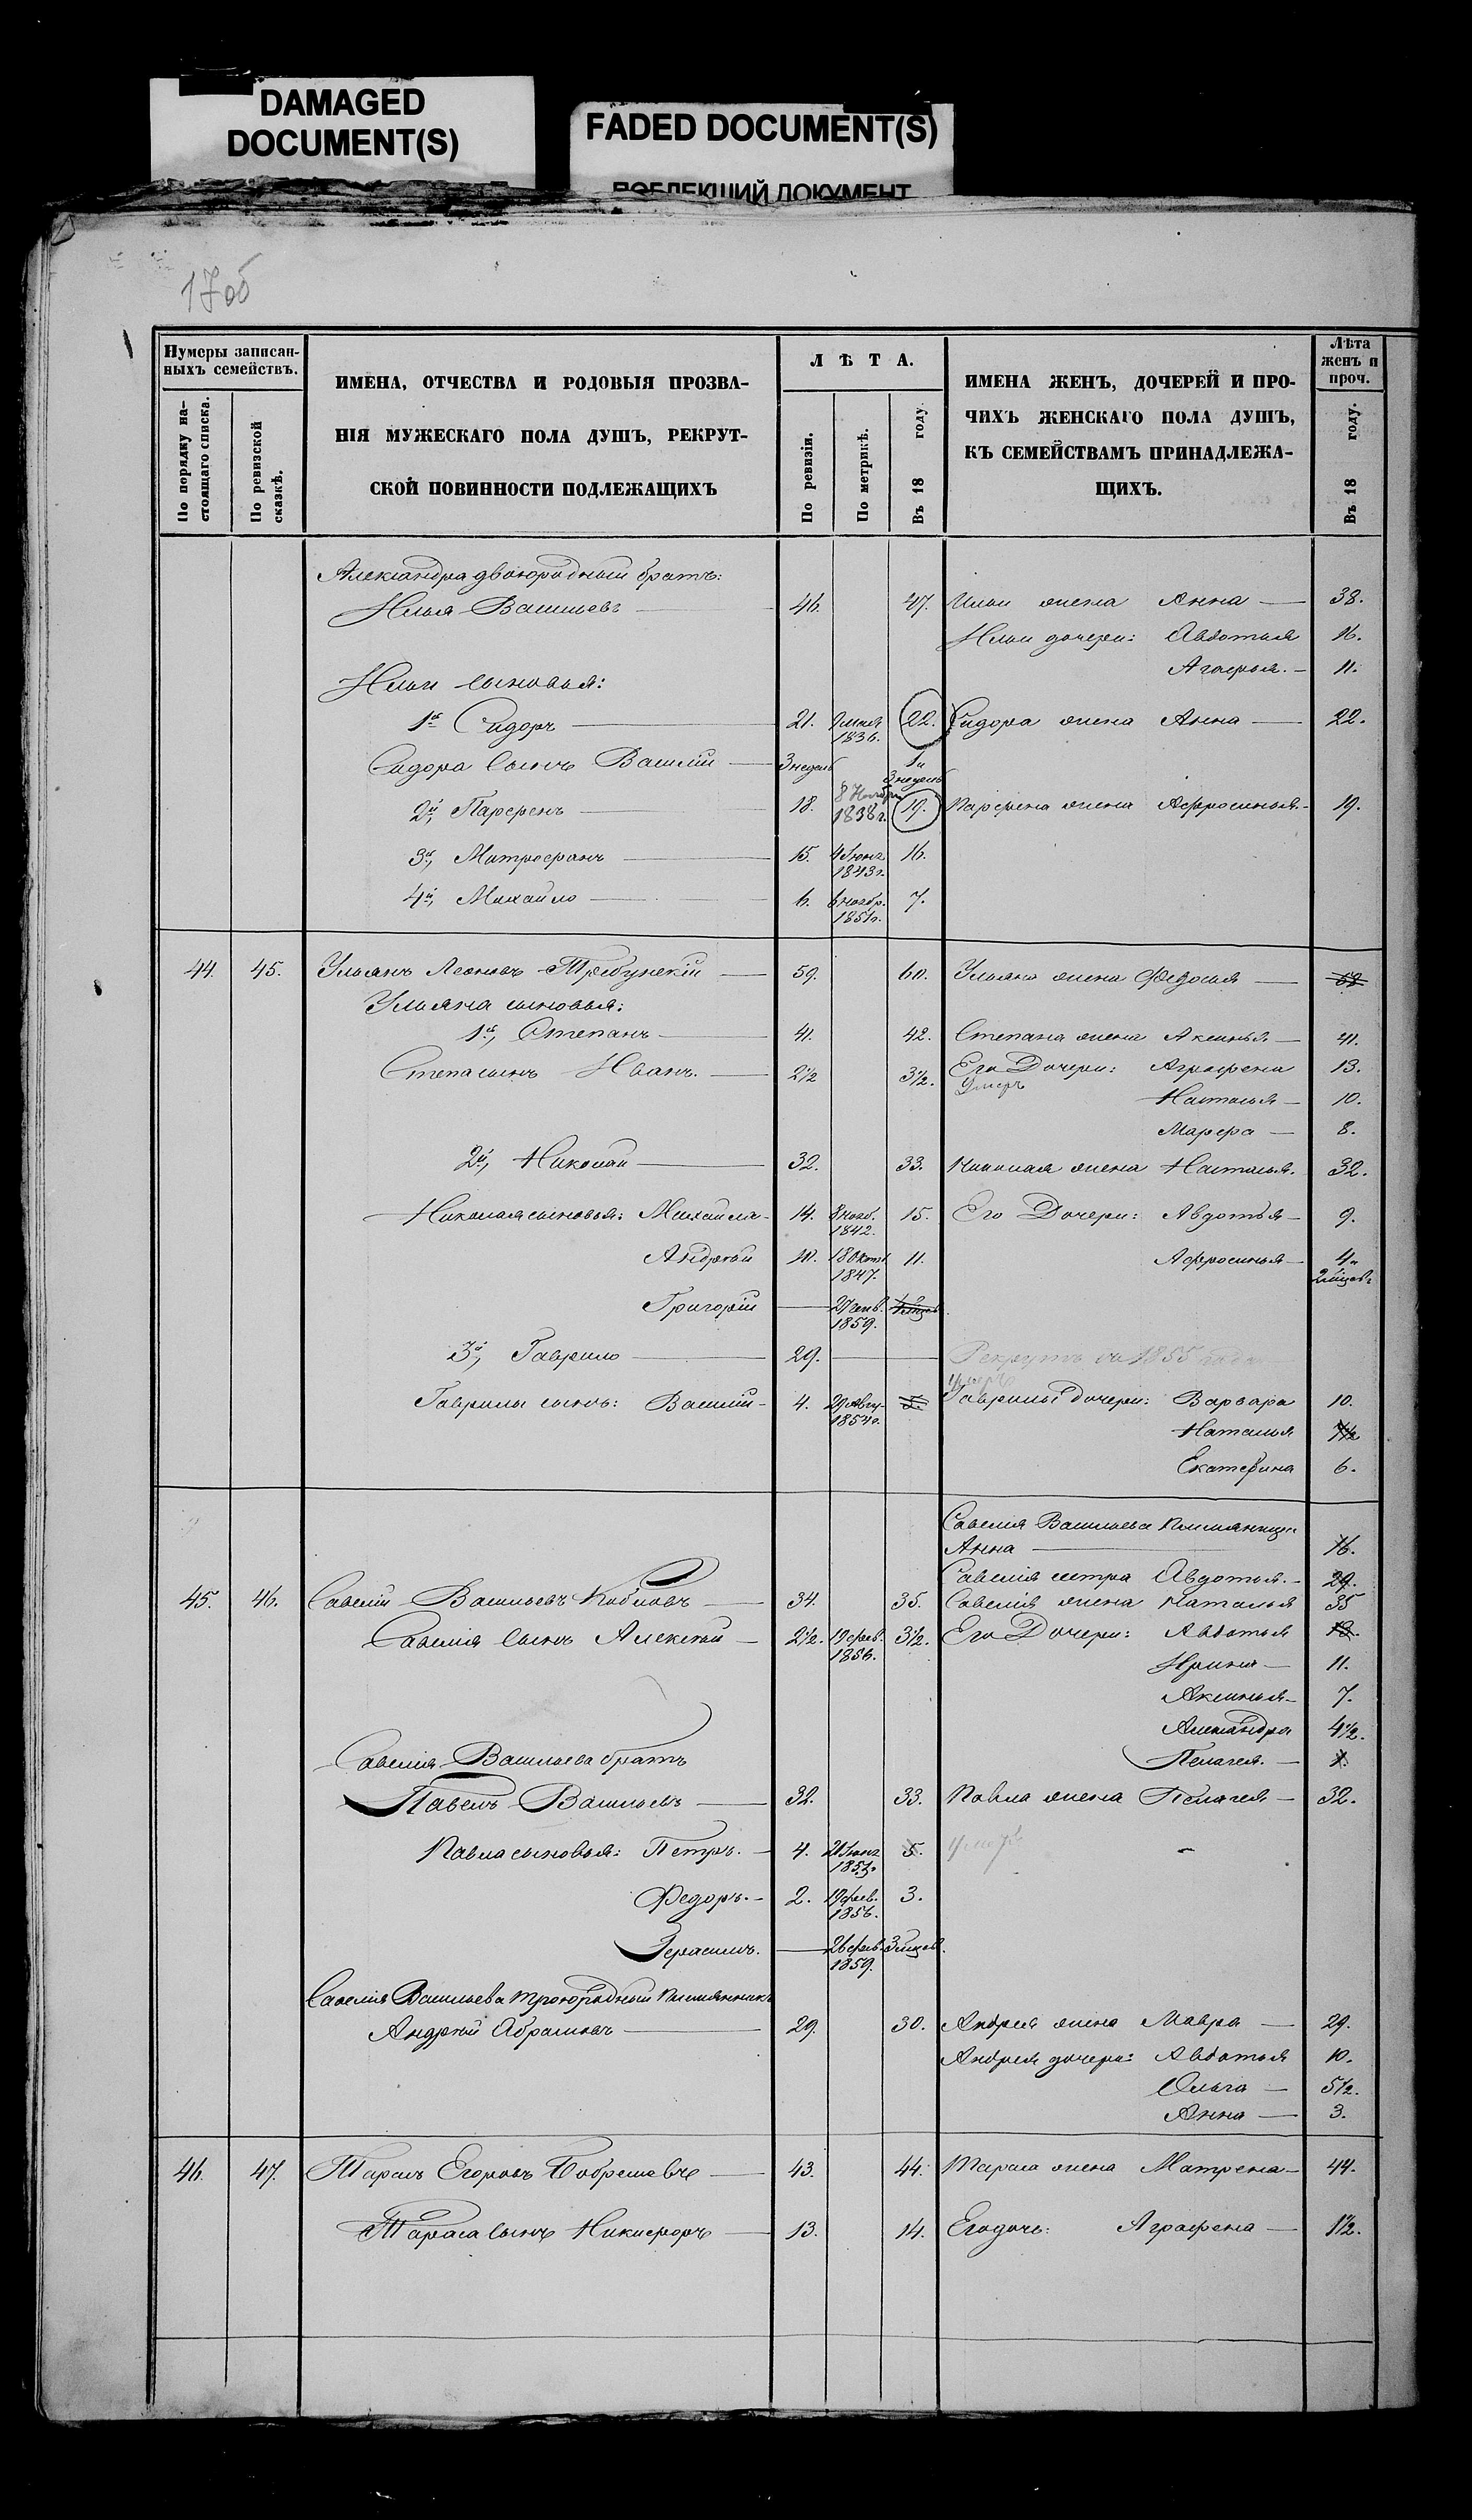 DAMAGED
DOCUMENT(S)
FADED DOCUMENT(S)
17об
Нумеры записан-
ныхъ семействъ.
По порядку на-
стоящаго списка.
По ревизской
сказкѣ.
ИМЕНА, ОТЧЕСТВА И РОДОВЫЯ ПРОЗВА-
НІЯ МУЖЕСКАГО ПОЛА ДУШЪ, РЕКРУТ-
СКОЙ ПОВИННОСТИ ПОДЛЕЖАЩИХЪ
ЛѢТА.
По ревизіи.
По метрикѣ.
Въ 18 году.
ИМЕНА ЖЕНЪ, ДОЧЕРЕЙ И ПРО-
ЧИХЪ ЖЕНСКАГО ПОЛА ДУШЪ,
КЪ СЕМЕЙСТВАМЪ ПРИНАДЛЕЖА-
ЩИХЪ.
Лѣта
женъ и
проч.
Въ 18 году.
Александра двоюродный братъ:
Илья Васильевъ 46. 47. Ильи жена Анна 38.
Ильи дочери: Авдотья 16.
Агафья. 11.
Ильи сыновья:
1й Сидоръ 21. 1836. 22. Сидора жена Анна 22.
Сидора сынъ Василій 3 недель 1 и 3 недель
2й, Парфенъ 18. 8 Ноября 1838г. 19. Парфена жена Афросинья 19.
3й, Митрофанъ 15. 4 Іюня 1843г. 16.
4й, Михайло 6. 6 нояб. 1851г. 7.
44. 45. Ульянъ Леоновъ Требунскій 59. 60. Ульяна жена Федосья
Ульяна сыновья:
1й, Степанъ 41. 42. Степана жена Аксинья 41.
Степа сынъ Иванъ. 2½ 3½. Его Дочери: Аграфена 13.
Умеръ Наталья 10.
Марфа 8.
2й, Николай 32. 33. Николая жена Наталья. 32.
Николая сыновья: Михайла 14. 8 нояб. 1842. 15. Его Дочери: Авдотья 9.
Андрей 10. 18 Окт. 1847. 11. Афросинья 4 и 2 мѣсяц.
Григорій 27 генв. 1859.
3й, Гаврило 29. Рекрутъ въ 1855 года
умеръ
Гаврилы сынъ: Василій 4. 29 Авгу. 1854г. 5. Гаврилы дочери: Варвара 10.
Наталья 7½
Екатерина 6.
Савелія Васильева племянница
Анна 16.
Савелія сестра Авдотья. 29.
45. 46. Савелій Васильевъ Кобловъ 34. 35. Савелія жена Наталья 35
Савелія сынъ Алексѣй 2½. 19 фев. 1856. 3½. Его Дочери: Авдотья 13.
Ирина 11.
Аксинья 7.
Александра 4½.
Савелія Васильева братъ Пелагея. 1.
Павелъ Васильевъ 32. 33. Павла жена Пелагея 32.
Павла сыновья: Петръ. 4. 5. умеръ
Федоръ. 2. 19 фев. 1856. 3.
Герасимъ. 26 фев. 1859. 3 мѣсяц.
Савелія Васильева троюродный племянникъ
Андрей Абрамовъ 29. 30. Андрея жена Мавра 29.
Андрея дочери: Авдотья 10.
Ольга 5½.
Анна 3.
46. 47. Тарасъ Егоровъ Бобрешовъ 43. 44. Тараса жена Матрена 44.
Тараса сынъ Никифоръ 13. 14. Его дочь: Аграфена 1½.